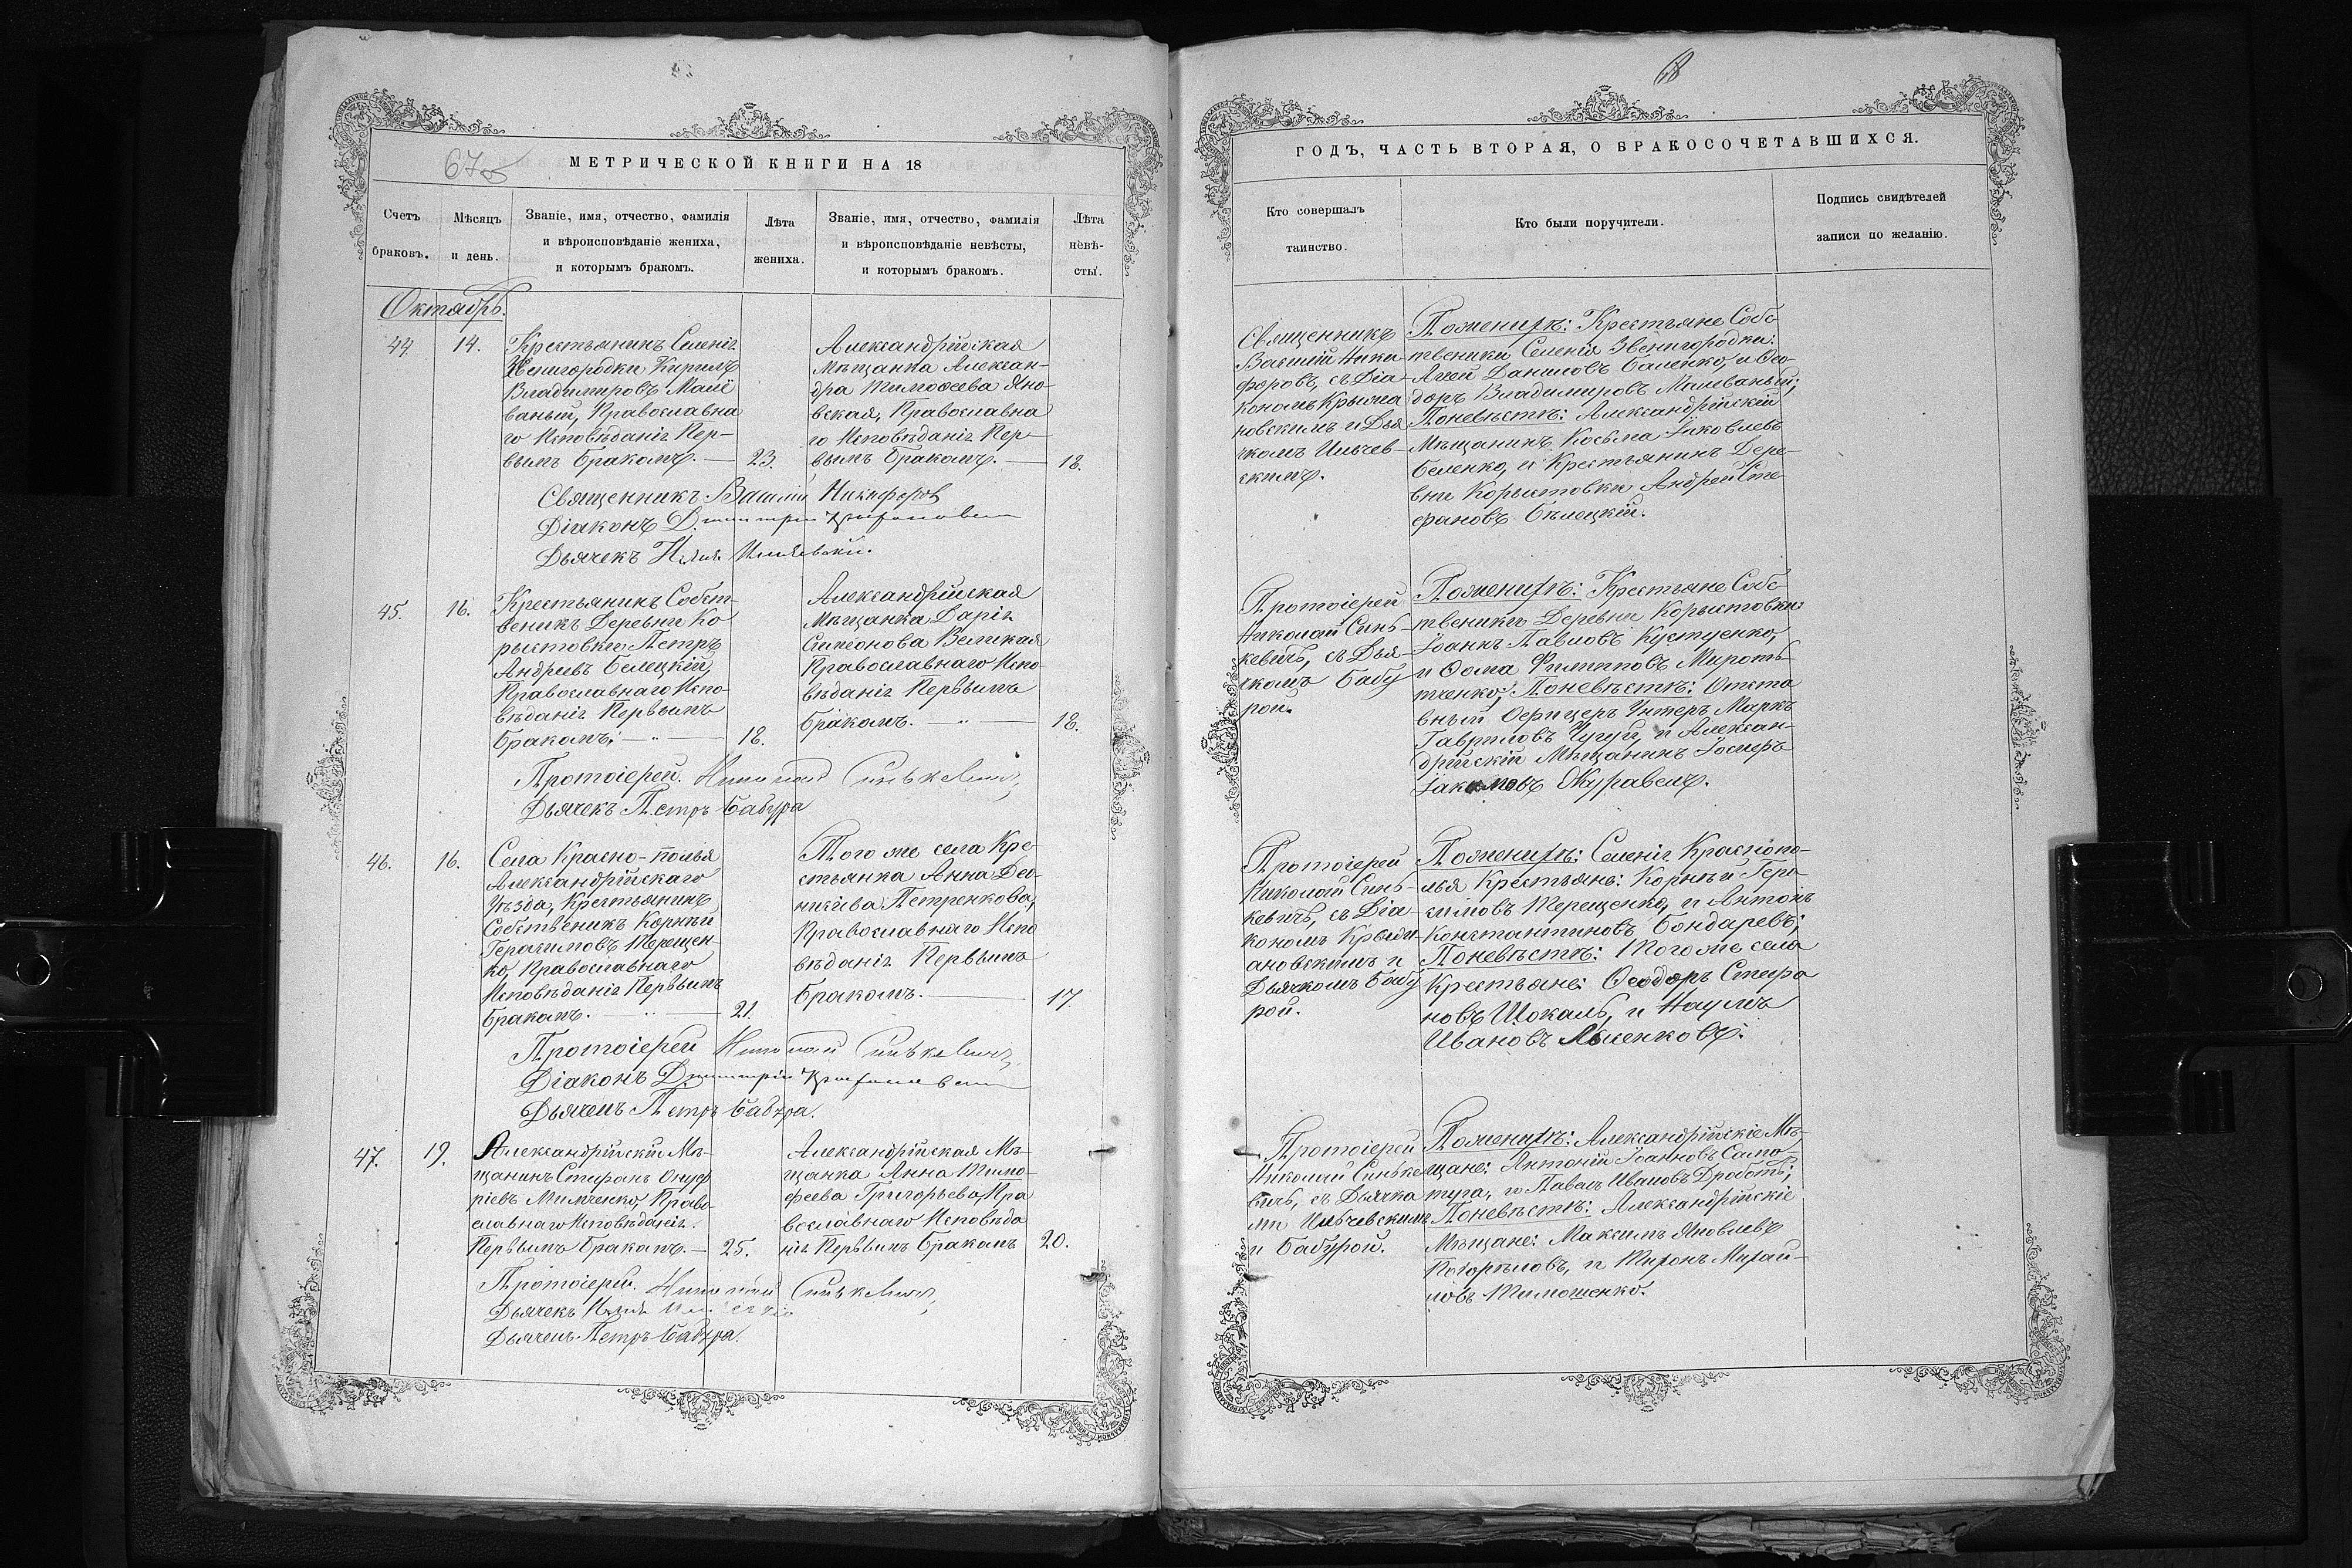 67об
МЕТРИЧЕСКОЙ КНИГИ НА 18
Счетъ браковъ.
Мѣсяцъ и день.
Званіе, имя, отчество, фамилія и вѣроисповѣданіе жениха, и которымъ бракомъ.
Лѣта жениха.
Званіе, имя, отчество, фамилія и вѣроисповѣданіе невѣсты, и которымъ бракомъ.
Лѣта невѣ-сты.
Октябрь.
44
14.
Крестьянинъ Селенія
Звенигородки Кирилъ
Владимировъ Мали
ваный, Православна
го Исповѣданія Пер-
вымъ бракомъ.
23.
Александрійская
Мѣщанка Алексан-
дра Тимофеева Яно-
вская, Православна
го Исповѣданія Пер-
вымъ бракомъ.
18.
Священникъ Василій Никифоровъ
Діаконъ Димитрій
Дьячекъ
45.
16.
Крестьянинъ Собст-
венникъ Деревни Ко
рыстовки Петръ
Андреевъ Белецкій,
Православнаго Испо-
вѣданія Первымъ
бракомъ;
18.
Александрійская
Мѣщанка Дарія
Симеонова Великая
Православнаго Испо
вѣданія Первымъ
бракомъ.
18.
Протоіерей Николай Синькевичъ
Дьячекъ Петръ Бабура
46.
16.
Села Красно-полья
Александрійскаго
Уѣзда, Крестьянинъ
Собственикъ Корнѣй
Герасимовъ Терещен-
ко, Православнаго
Исповѣданія Первымъ
бракомъ.
21.
Того же села Кре-
стьянка Анна Део-
нисіева Петренкова,
Православнаго Испо
вѣданія Первымъ
бракомъ.
17.
Протоіерей Николай Синькевичъ
Діаконъ Димитрій
Дьячекъ Петръ Бабура.
47.
19.
Александрійскій Мѣ-
щанинъ Стефанъ Онуф
ріевъ Мимченко, Право
славнаго Исповѣданія.
Первымъ бракомъ.
25.
Александрійская Мѣ-
щанка Анна Тимо-
феева Григорьева, Пра
вославнаго Исповѣда
нія Первымъ бракомъ
20.
Протоіерей Николай Синькевичъ
Дьячекъ
Дьячекъ Петръ Бабура.
68
ГОДЪ, ЧАСТЬ ВТОРАЯ, О БРАКОСОЧЕТАВШИХСЯ.
Кто совершалъ таинство.
Кто были поручители.
Подпись свидѣтелей записи по желанію.
Священникъ
Василій Ники-
форовъ, съ Діа-
кономъ Крыжа
новскимъ и Дья
чкомъ Ильчев-
скимъ.
По женихѣ: Крестьяне Собс
твеники Селенія Звенигородки:
Даниловъ Саленко, и Өео-
доръ Владимировъ Маливаный;
По невѣстѣ: Александрійскій
Мѣщанинъ Косьма Іаковлевъ
Беленко, и Крестьянинъ Дере-
вни Корыстовки Андрей Сте
фановъ Бѣлецкій.
Протоіерей
Николай Синь-
кевичъ, съ Дья-
чкомъ Бабу
рой.
По женихѣ: Крестьяне Собс
твеники Деревни Корыстовки:
Іоаннъ Павловъ Кустценко,
и Өома Филипповъ Мирошт-
ниченко; По невѣстѣ: Отста
вный Офицеръ Унтеръ Маркъ
Гавриловъ Чугуй, и Алексан-
дрійскій Мѣщанинъ Іосифъ
Іакимовъ Журавель.
Протоіерей
Николай Синь-
кевичъ, съ Діа-
кономъ Крыжи-
ановскимъ и
Дьячкомъ Бабу
рой.
По женихѣ: Селенія Краснопо-
лья Крестьянъ: Корнѣй Гера-
симовъ Терещенко, и Антонъ
Константиновъ Бондаревъ;
По невѣстѣ: Того же села
Крестьяне: Өеодоръ Стефа
новъ Шокаль, и Наумъ
Ивановъ Лысенковъ.
Протоіерей
Николай Синьке
вичъ, съ Дьячка
ми Ильчевскимъ
и Бабурой.
По женихѣ: Александрійскіе Мѣ-
щане: Антоній Іоанновъ Само-
туга, и Павелъ Ивановъ Дроботъ;
По невѣстѣ: Александрійскіе
Мѣщане: Максимъ Яковлевъ
Погорѣловъ, и Миронъ Михай-
ловъ Тимошенко.